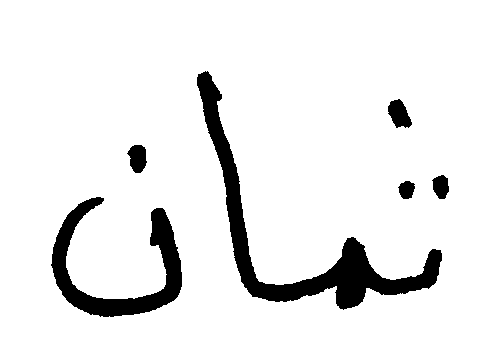 ثمان